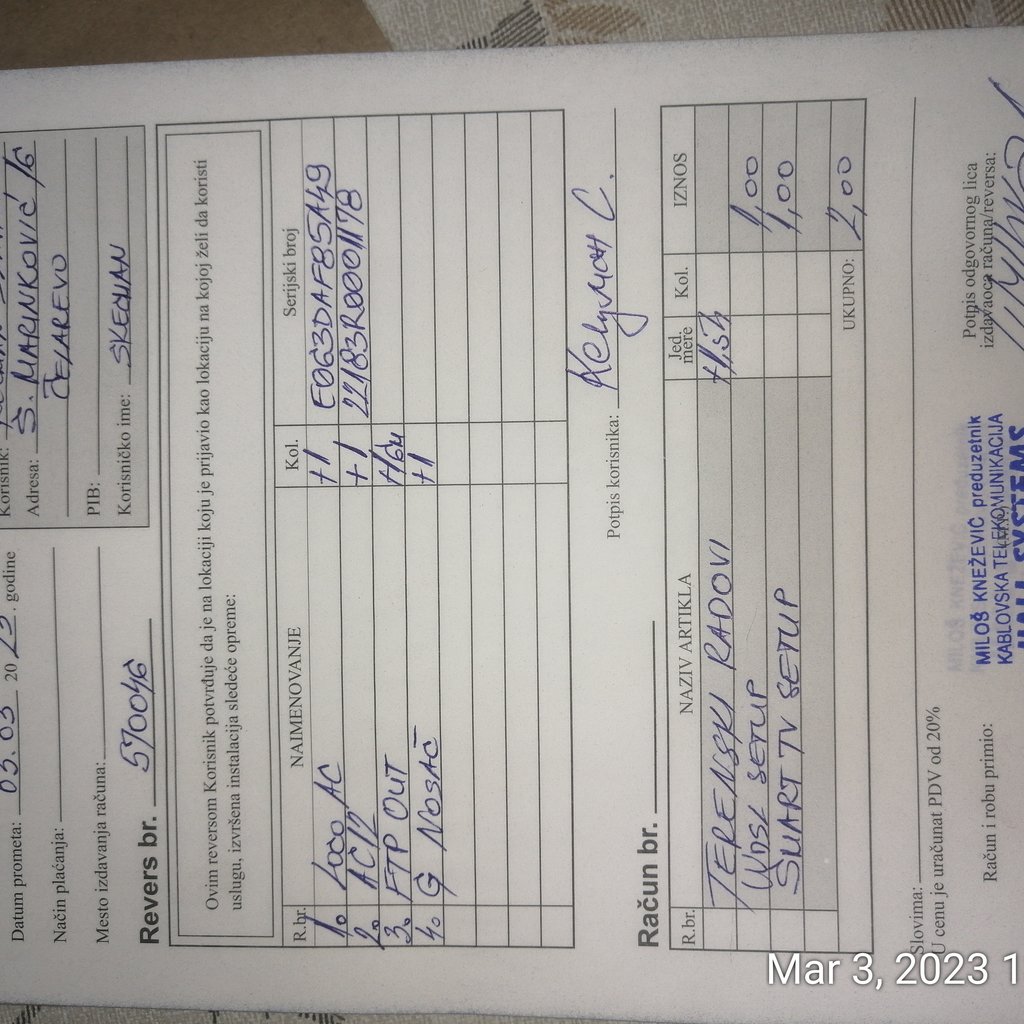 Datum prometa: 03.03 2023. godine
Način plaćanja:
Mesto izdavanja računa:
Korisnik:
Adresa: Š. MARINKOVIĆ 16
ČELAREVO
PIB:
Korisničko ime: SKECMAN
Revers br. 570046
Ovim reversom Korisnik potvrđuje da je na lokaciji koju je prijavio kao lokaciju na kojoj želi da koristi
uslugu, izvršena instalacija sledeće opreme:
R.br. NAIMENOVANJE Kol. Serijski broj
1. LOCO AC +1 E063DAF85A49
2. AC12 +1 22183R0001178
3. FTP OUT +16m
4. G NOSAČ +1
Potpis korisnika: Келуман С.
Račun br.
R.br. NAZIV ARTIKLA Jed. mere Kol. IZNOS
TERENSKI RADOVI
WDSL SETUP 1,00
SMART TV SETUP 1,00
UKUPNO: 2,00
Slovima:
U cenu je uračunat PDV od 20%
Račun i robu primio:
MILOŠ KNEŽEVIĆ preduzetnik
KABLOVSKA TELEKOMUNIKACIJA
SYSTEMS
Potpis odgovornog lica
izdavaoca računa/reversa:
Mar 3, 2023 1